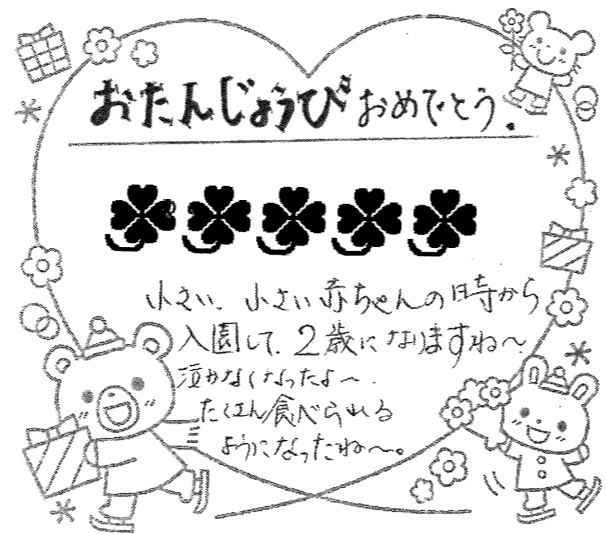 おたんじょうび おめでとう.
小さい、小さい赤ちゃんの時から
入園して、2歳になりますね〜
泣かなくなったよ〜.
たくさん食べられる
ようになったね〜。